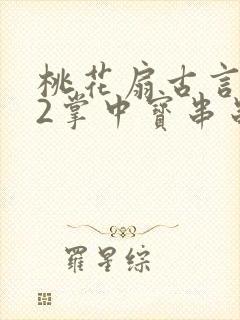 桃花扇古言
2掌中寶串
羅星綜